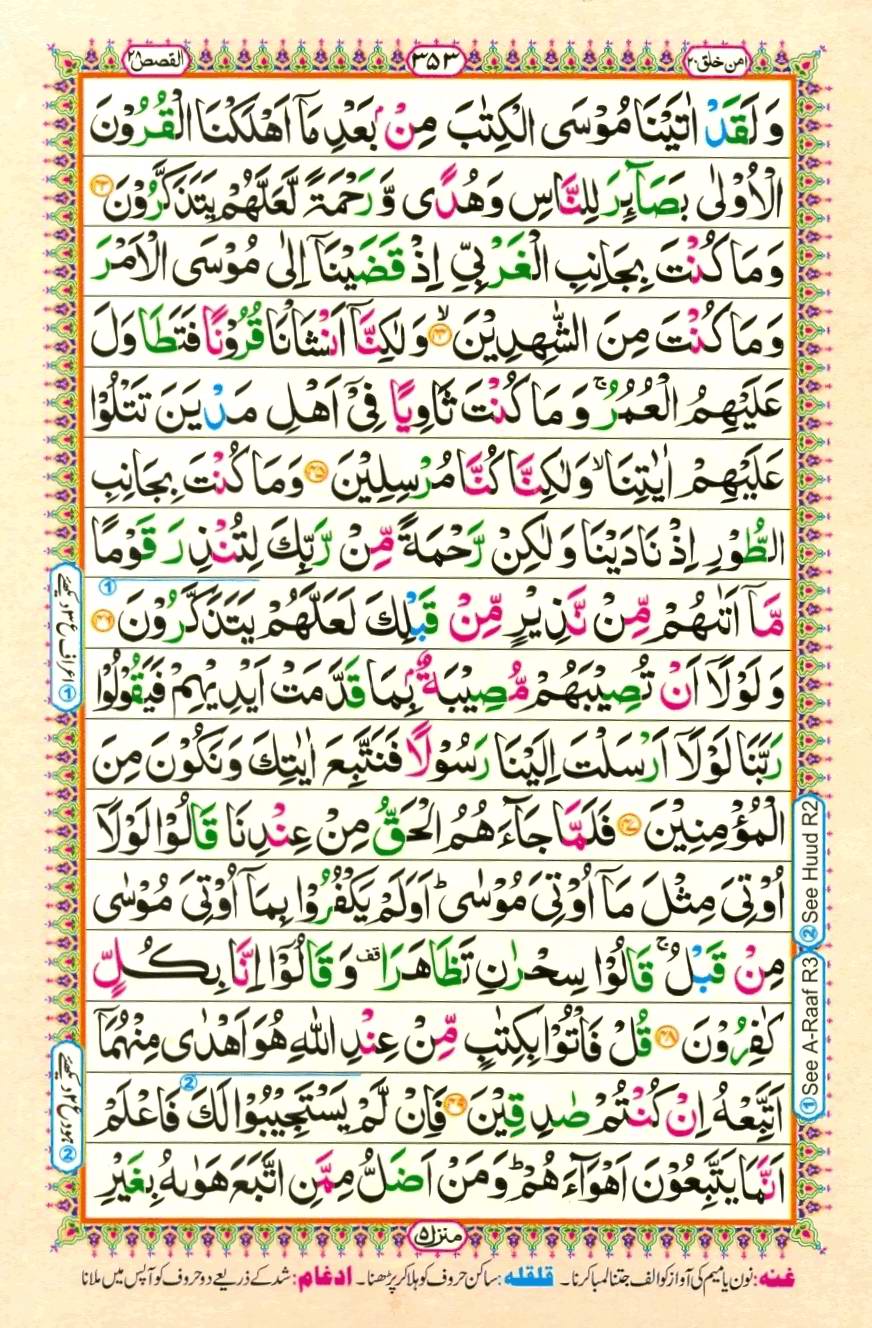 امن خلق ۲۰
۳۵۳
القصص ۲۸
وَ لَقَدْ اٰتَيْنَا مُوْسَى الْكِتٰبَ مِنْۢ بَعْدِ مَاۤ اَهْلَكْنَا الْقُرُوْنَ
الْاُوْلٰى بَصَآئِرَ لِلنَّاسِ وَ هُدًى وَّ رَحْمَةً لَّعَلَّهُمْ يَتَذَكَّرُوْنَ ۴۳
وَ مَا كُنْتَ بِجَانِبِ الْغَرْبِيِّ اِذْ قَضَيْنَاۤ اِلٰى مُوْسَى الْاَمْرَ
وَ مَا كُنْتَ مِنَ الشّٰهِدِيْنَ ۙ۴۴ وَ لٰكِنَّاۤ اَنْشَاْنَا قُرُوْنًا فَتَطَاوَلَ
عَلَيْهِمُ الْعُمُرُ ۚ وَ مَا كُنْتَ ثَاوِيًا فِيْۤ اَهْلِ مَدْيَنَ تَتْلُوْا
عَلَيْهِمْ اٰيٰتِنَا ۙ وَ لٰكِنَّا كُنَّا مُرْسِلِيْنَ ۴۵ وَ مَا كُنْتَ بِجَانِبِ
الطُّوْرِ اِذْ نَادَيْنَا وَ لٰكِنْ رَّحْمَةً مِّنْ رَّبِّكَ لِتُنْذِرَ قَوْمًا
مَّاۤ اَتٰىهُمْ مِّنْ نَّذِيْرٍ مِّنْ قَبْلِكَ لَعَلَّهُمْ يَتَذَكَّرُوْنَ ۴۶
وَ لَوْلَاۤ اَنْ تُصِيْبَهُمْ مُّصِيْبَةٌۢ بِمَا قَدَّمَتْ اَيْدِيْهِمْ فَيَقُوْلُوْا
رَبَّنَا لَوْلَاۤ اَرْسَلْتَ اِلَيْنَا رَسُوْلًا فَنَتَّبِعَ اٰيٰتِكَ وَ نَكُوْنَ مِنَ
الْمُؤْمِنِيْنَ ۴۷ فَلَمَّا جَآءَهُمُ الْحَقُّ مِنْ عِنْدِنَا قَالُوْا لَوْلَاۤ
اُوْتِيَ مِثْلَ مَاۤ اُوْتِيَ مُوْسٰى ؕ اَوَ لَمْ يَكْفُرُوْا بِمَاۤ اُوْتِيَ مُوْسٰى
مِنْ قَبْلُ ۚ قَالُوْا سِحْرٰنِ تَظَاهَرَا قف وَ قَالُوْۤا اِنَّا بِكُلٍّ
كٰفِرُوْنَ ۴۸ قُلْ فَاْتُوْا بِكِتٰبٍ مِّنْ عِنْدِ اللّٰهِ هُوَ اَهْدٰى مِنْهُمَاۤ
اَتَّبِعْهُ اِنْ كُنْتُمْ صٰدِقِيْنَ ۴۹ فَاِنْ لَّمْ يَسْتَجِيْبُوْا لَكَ فَاعْلَمْ
اَنَّمَا يَتَّبِعُوْنَ اَهْوَآءَهُمْ ؕ وَ مَنْ اَضَلُّ مِمَّنِ اتَّبَعَ هَوٰىهُ بِغَيْرِ
① اعراف ع ۳ دیکھئے
② ہود ع ۲ دیکھئے
① See A-Raaf R3
② See Huud R2
منزل ۵
غنه: نون یا میم کی آواز کو الف جتنا لمبا کرنا۔ قلقله: ساکن حروف کو ہلا کر پڑھنا۔ ادغام: شد کے ذریعے دو حروف کو آپس میں ملانا